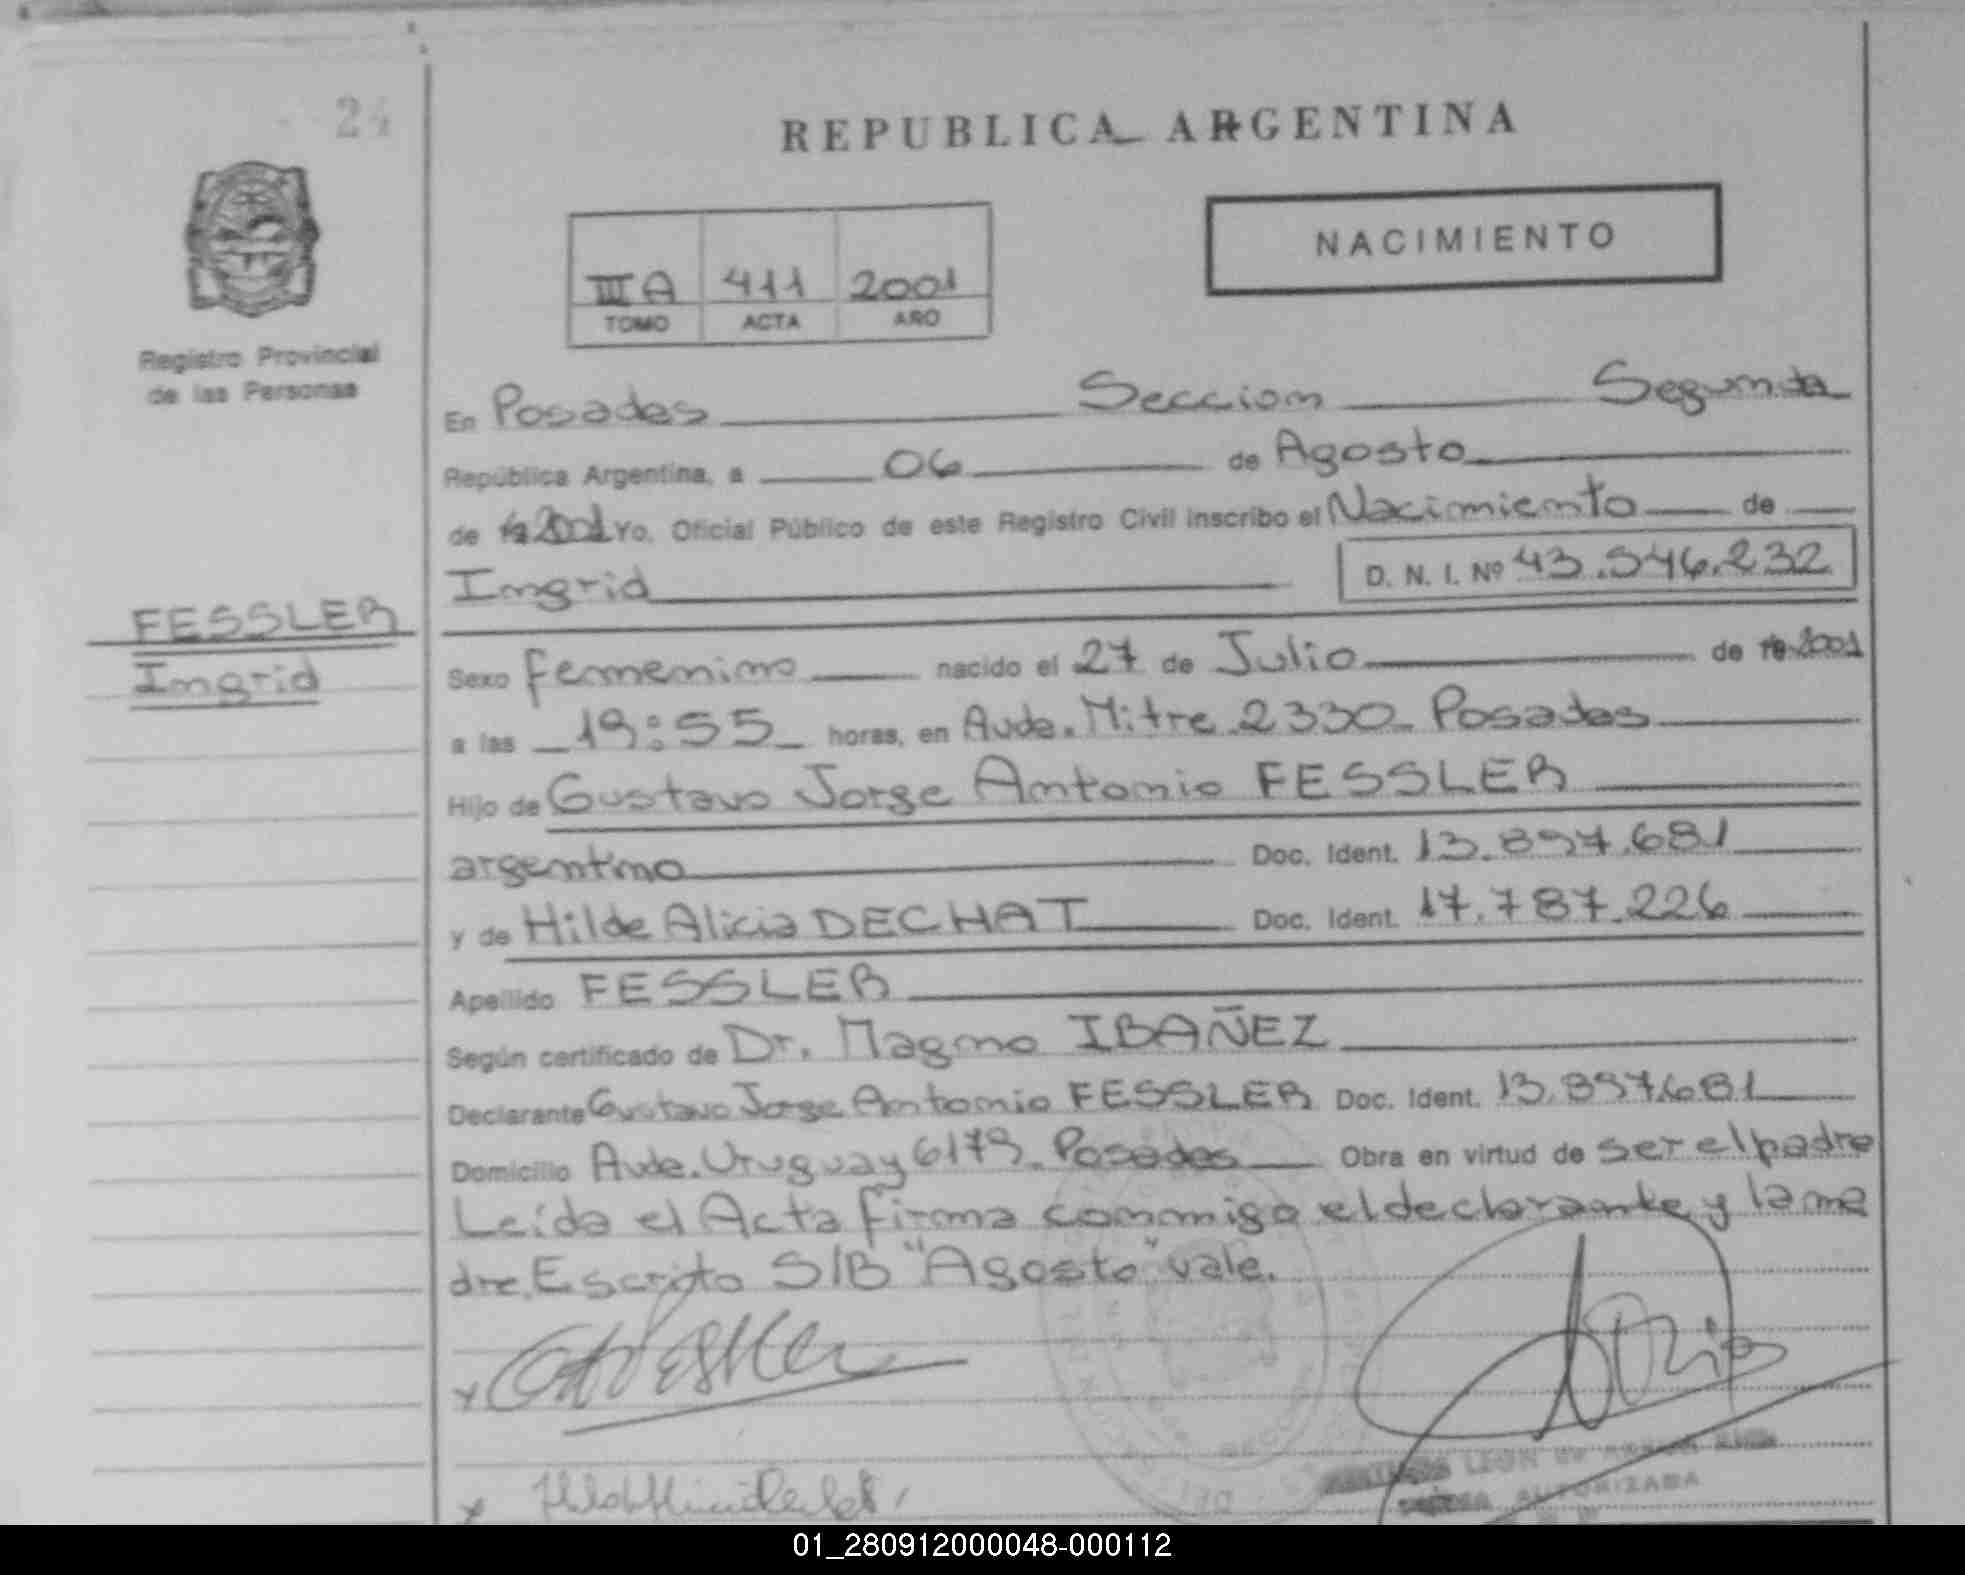 24
REPUBLICA ARGENTINA
NACIMIENTO
III A 411 2001
TOMO ACTA AÑO
Registro Provincial
de las Personas
En Posadas Seccion Segunda
República Argentina, a 06 de Agosto
de 2001 Yo, Oficial Público de este Registro Civil inscribo el Nacimiento de
Ingrid D. N. I. Nº 43.546.232
FESSLER
Ingrid
Sexo femenino nacido el 27 de Julio de 2001
a las 19:55 horas, en Avda. Mitre 2330 Posadas
Hijo de Gustavo Jorge Antonio FESSLER
argentino Doc. Ident. 13.897.681
y de Hilda Alicia DECHAT Doc. Ident. 17.787.226
Apellido FESSLER
Según certificado de Dr. Magno IBAÑEZ
Declarante Gustavo Jorge Antonio FESSLER Doc. Ident. 13.897.681
Domicilio Avda. Uruguay 6179. Posadas Obra en virtud de ser el padre
Leída el Acta firma conmigo el declarante y la ma
dre. Escrito S/B "Agosto" vale.
LEON
AUTORIZADA
01_280912000048-000112